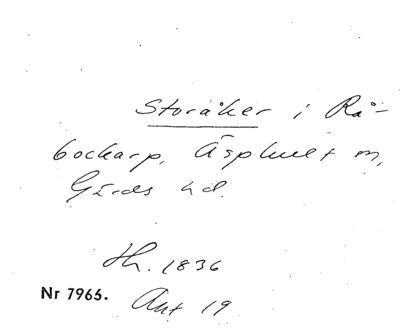 Storåker i Rå-
bockarp, Äsphult m,
Gärds hd.
Hh. 1836
Nr 7965. Akt 19